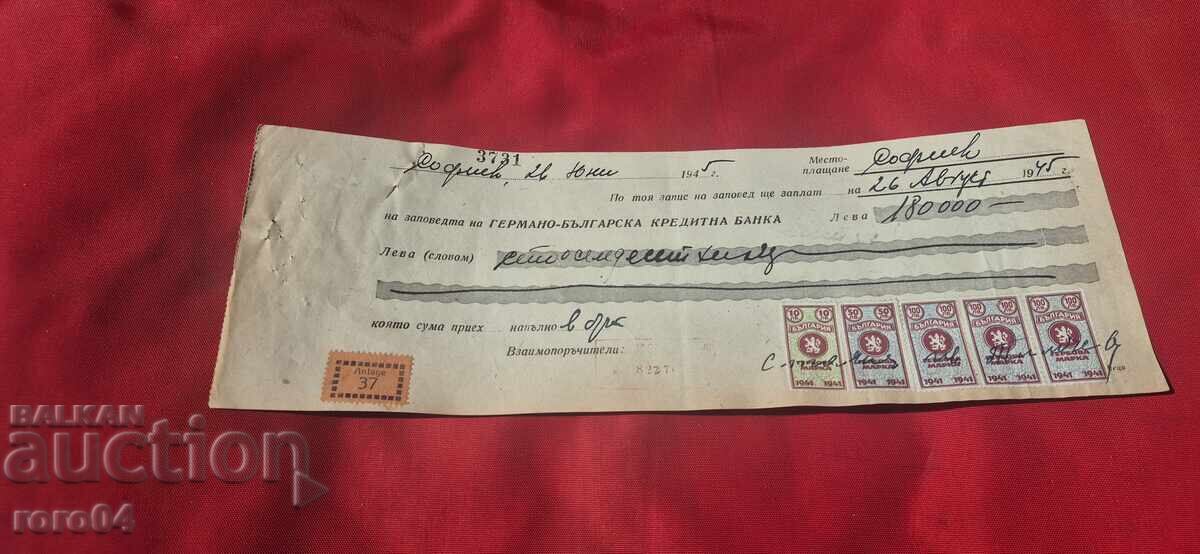 3731
София, 26 Юни 1945 г.
Место-
плащане София
По тоя запис на заповед ще заплат на 26 Август 1945 г.
на заповедта на ГЕРМАНО-БЪЛГАРСКА КРЕДИТНА БАНКА Лева 180000—
Лева (словом) стоосемдесет хиляди
която сума приех напълно в брой
Взаимопоръчители:
8227
Anlage
37
10 10
БЪЛГАРИЯ
1941
50 50
БЪЛГАРИЯ
МАРКА
1941 1941
100 100
БЪЛГАРИЯ
МАРКА
1941 1941
100 100
БЪЛГАРИЯ
МАРКА
1941 1941
100 100
БЪЛГАРИЯ
ГЕРБОВА
МАРКА
1941 1941
BALKAN
auction
roro04